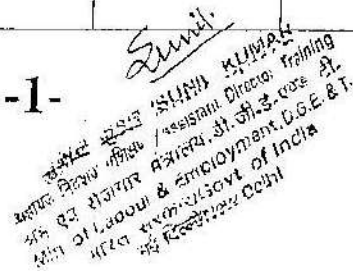 -1-
Sunil
सुनील कुमार / SUNIL KUMAR
सहायक निदेशक प्रशिक्षण / Assistant Director Training
श्रम एवं रोजगार मंत्रालय, डी.जी.ई. एण्ड टी.
Min of Labour & Employment, D.G.E. & T.
भारत सरकार/Govt of India
नई दिल्ली/New Delhi